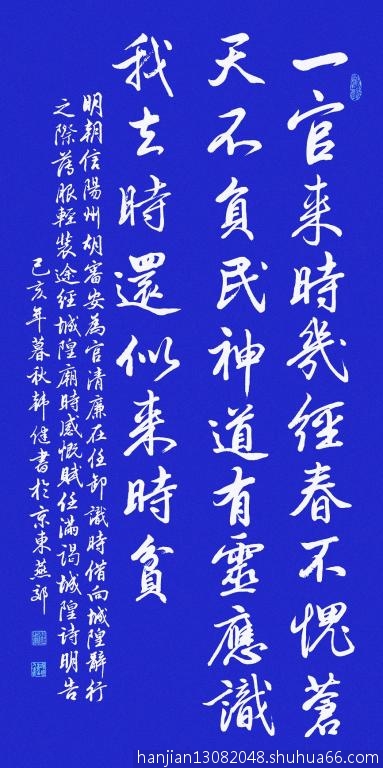 一官来時幾經春不愧蒼
天不負民神道有靈應識
我去時還似来時貧
明朝信陽州胡審安為官清廉在任卸識時借向城隍辭行
之際服輕装途经城隍廟時感慨賦任滿謁城隍詩明告
己亥年暮秋韩健書於京東燕郊
hanjian13082048.shuhua66.com